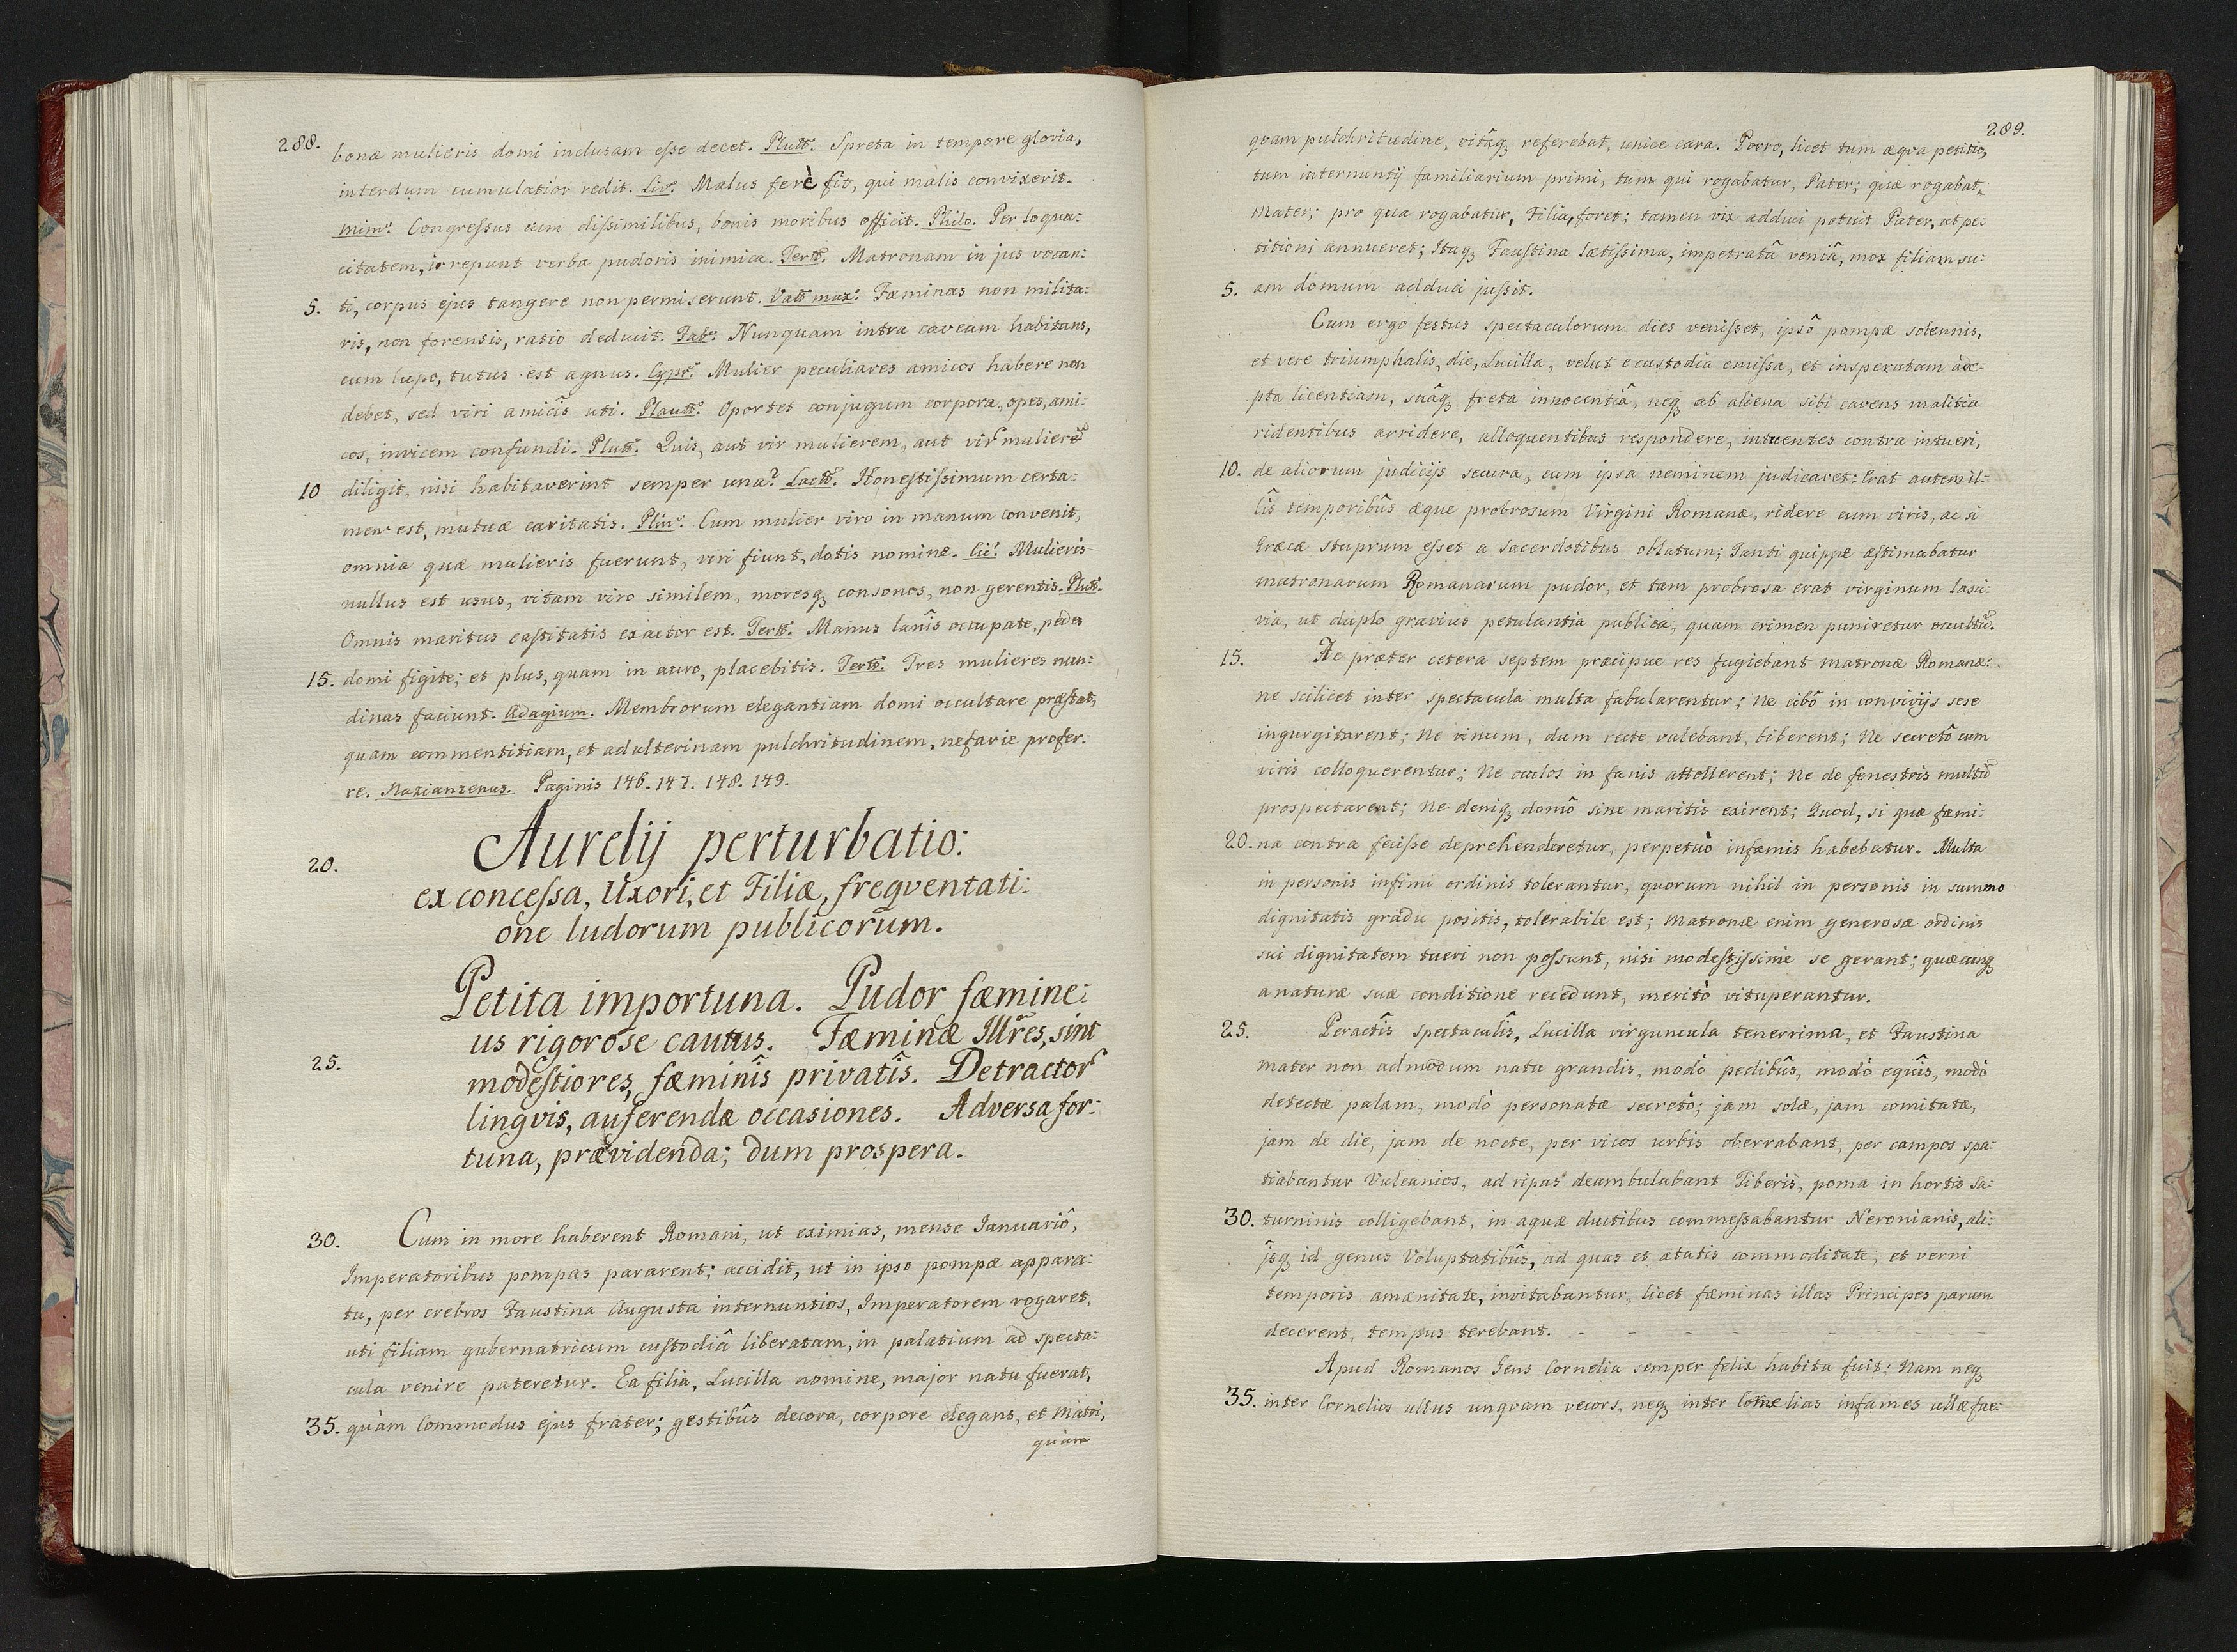 288.
bonæ mulieris domi inclusam esse decet. Plutt. Spreta in tempore gloria,
interdum cumulatior redit. Liv. Malus ferè fit, qui malis convixerit.
Mim. Congressus cum dissimilibus, bonis moribus officit. Philo. Per loqua:
citatem, irrepunt verba pudoris inimica. Tertt. Matronam in jus vocan:
5. ti, corpus ejus tangere non permiserunt. Vatt max: Fæminas non milita:
ris, non forensis, ratio deducit. Fab. Nunquam intra caveam habitans,
cum lupo, tutus est agnus. Cypr. Mulier peculiares amicos habere non
debet, sed viri amicîs uti. Plautt. Oportet conjugum corpora, opes, ami:
cos, invicem confundi. Plutt. Quis, aut vir mulierem, aut virũ mulierẽ
10 diligit, nisi habitaverint semper una? Lactt. Honestissimum certa:
men est, mutuæ caritatis. Plin. Cum mulier viro in manum convenit,
omnia quæ mulieris fuerunt, viri fiunt, dotis nomine. Cic. Mulieris
nullus est usus, vitam viro similem, moresq; consonos, non gerentis. Plut.
Omnis maritus castitatis exactor est. Tertt. Manus lanîs occupate, pedes
15. domi figite; et plus, quam in auro, placebitis. Tertt. Tres mulieres nun:
dinas faciunt. Adagium. Membrorum elegantiam domi occultare præstat,
quam commentitiam, et adulterinam pulchritudinem, nefarie profer:
re. Nazianzenus. Paginis 146. 147. 148. 149.
20. Aurelij perturbatio:
ex concessa, Uxori, et Filiæ, freqventati:
one ludorum publicorum.
Petita importuna. Pudor fæmine:
us rigorose cautus. Fæminæ Illr̃es, sint
25. modestiores, fæminîs privatîs. Detractor̃
lingvis, auferendæ occasiones. Adversa for:
tuna, prævidenda; dum prospera.
30. Cum in more haberent Romani, ut eximias, mense Ianuariô,
Imperatoribus pompas pararent; accidit, ut in ipso pompæ appara:
tu, per crebros Faustina Augusta internuntios, Imperatorem rogaret,
uti filiam gubernatricum custodiâ liberatam, in palatium ad specta:
cula venire pateretur. Ea filia, Lucilla nomine, major natu fuerat,
35. quàm Commodus ejus frater; gestibûs decora, corpore elegans, et Matri,
quàm
289.
qvam pulchritudine, vitâq; referebat, unice cara. Porro, licet tum æqva petitio,
tum internuntij familiarium primi, tum qui rogabatur, Pater; quæ rogabat,
Mater; pro qua rogabatur, Filia, foret; tamen vix adduci potuit Pater, ut pe:
titioni annueret; Itaq; Faustina lætissima, impetratâ veniâ, mox filiam su:
5. am domum adduci jussit.
Cum ergo festus spectaculorum dies venisset, ipsô pompæ solennis,
et vere triumphalis, die, Lucilla, velut e custodia emissa, et insperatam ade:
pta licentiam, suâq; freta innocentiâ, neq; ab aliena sibi cavens malitia
ridentibus arridere, alloquentibus respondere, intuentes contra intueri,
10. de aliorum judicijs secura, cum ipsa neminem judicaret: Erat autem il:
lîs temporibûs æque probrosum Virgini Romanæ, ridere cum viris, ac si
Græcæ stuprum esset a sacerdotibus oblatum; Tanti quippe æstimabatur
matronarum Romanarum pudor, et tam probrosa erat virginum lasci:
via, ut duplo gravius petulantia publica, quam crimen puniretur occultũ.
15. Ac præter cetera septem præcipue res fugiebant Matronæ Romanæ:
ne scilicet inter spectacula multa fabularentur; Ne cibô in convivijs sese
ingurgitarent; Ne vinum, dum recte valebant, biberent; Ne secretô cum
viris colloquerentur; Ne oculos in fanis attollerent; Ne de fenestris multũ
prospectarent; Ne deniq; domô sine maritis exirent; Quod, si quæ fæmi:
20. na contra fecisse deprehenderetur, perpetuò infamis habebatur. Multa
in personis infimi ordinis tolerantur, quorum nihil in personis in summo
dignitatis gradu positis, tolerabile est; Matronæ enim generosæ ordinis
sui dignitatem tueri non possunt, nisi modestissime se gerant; quæcunq;
a naturæ suæ conditione recedunt, meritò vituperantur.
25. Peractîs spectaculîs, Lucilla virguncula tenerrima, et Faustina
mater non admodum natu grandis, modò pedibûs, modò eqũis, modò
detectæ palam, modò personatæ secretò; jam solæ, jam comitatæ,
jam de die, jam de nocte, per vicos urbis oberrabant, per campos spa:
tiabantur Vulcanios, ad ripas deambulabant Tiberis, poma in hortis Sa:
30. turninis colligebant, in aquæ ductibus commessabantur Neronianis, ali:
jsq; id genus Voluptatibûs, ad quas et ætatis commoditate, et verni
temporis amænitate, invitabantur, licet fæminas illas Principes parum
decerent, tempus terebant. - - - - - - - -
Apud Romanos Gens Cornelia semper felix habita fuit; Nam neq;
35. inter Cornelios ullus unqvam vecors, neq; inter Cornelias infames ullæ fue: